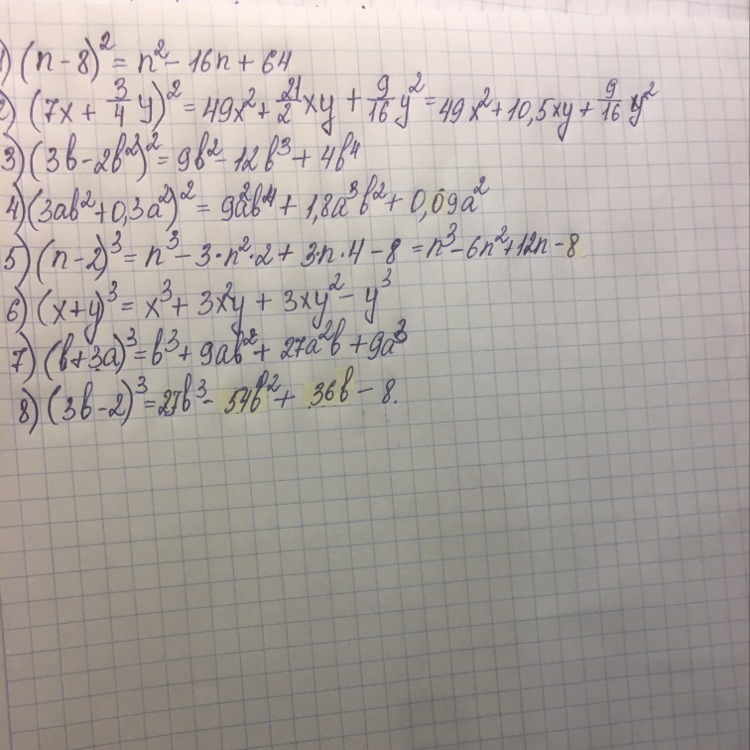 1) (n-8)² = n² - 16n + 64
2) (7x + 3/4 y)² = 49x² + 21/2 xy + 9/16 y² = 49x² + 10,5xy + 9/16 y²
3) (3b - 2b²)² = 9b² - 12b³ + 4b⁴
4) (3ab² + 0,3a²)² = 9a²b⁴ + 1,8a³b² + 0,09a²
5) (n-2)³ = n³ - 3·n²·2 + 3·n·4 - 8 = n³ - 6n² + 12n - 8
6) (x+y)³ = x³ + 3x²y + 3xy² - y³
7) (b+3a)³ = b³ + 9ab² + 27a²b + 9a³
8) (3b-2)³ = 27b³ - 54b² + 36b - 8.